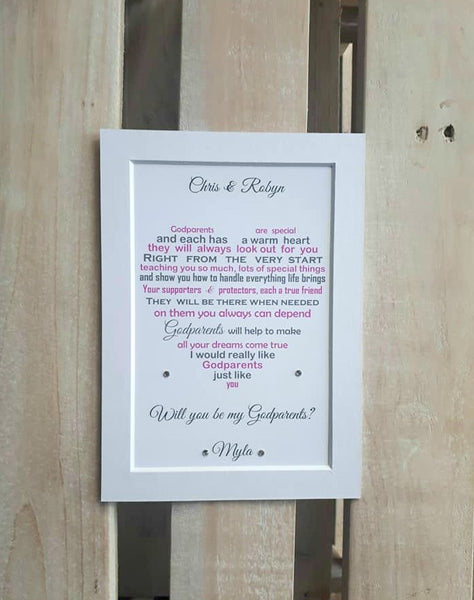 Chris & Robyn
Godparents are special
and each has a warm heart
they will always look out for you
RIGHT FROM THE VERY START
teaching you so much, lots of special things
and show you how to handle everything life brings
Your supporters & protectors, each a true friend
THEY WILL BE THERE WHEN NEEDED
on them you always can depend
Godparents will help to make
all your dreams come true
I would really like
Godparents
just like
you
Will you be my Godparents?
Myla